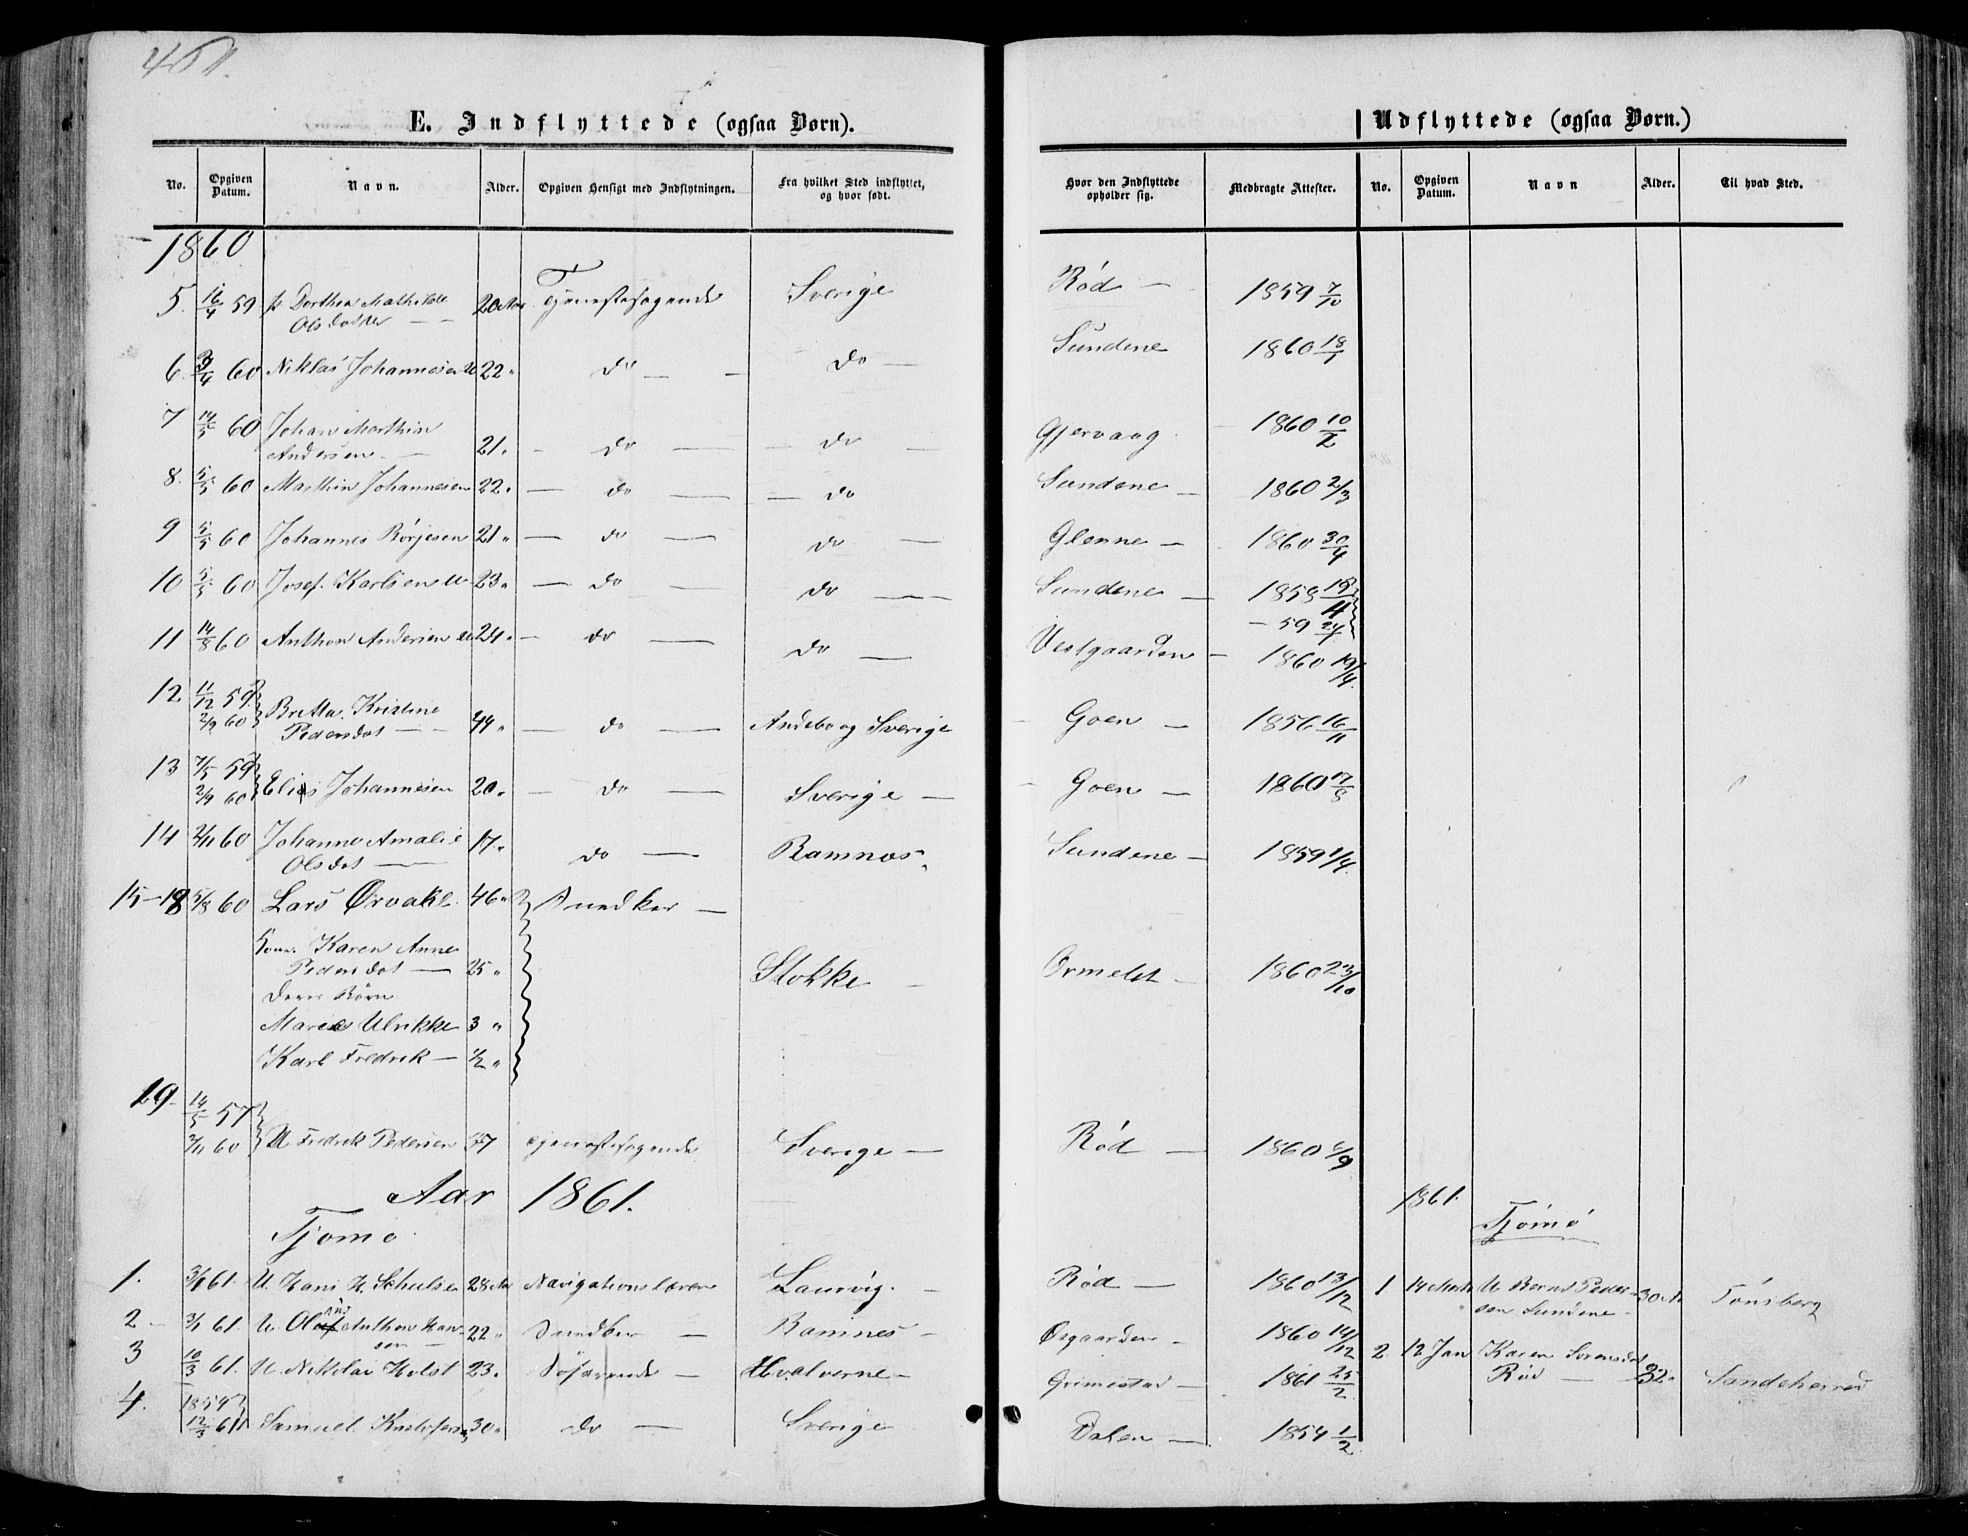 461.
E. Indflyttede (ogsaa Børn).
No. Opgiven Datum. Navn. Alder. Opgiven Hensigt med Indflytningen. Fra hvilket Sted indflyttet, og hvor født. Hvor den Indflyttede opholder sig. Medbragte Attester.
1860
5. 16/4 59 Dorthea Mathilde Olsdatter 20 Aar Tjenestesøgende Sverige Rød 1859 7/10
6. 60 Niklas Johannesen 22 do do Sundene 1860 18/1
7 14/5 60 Johan Marthin Andersen 21 do do Gjervaag 1860 10/2
8. 5/5 60 Marthin Johannesen 22 do do Sundene 1860 2/3
9 5/5 60 Johannes Børjesen 21 do do Glenne 1860 30/4
10 5/5 60 Josef Karlsen 23 do do Sundene 1858 18/11 - 59 24/1
11 14/8 60 Anthon Andersen 24 do do Vestgaarden 1860 19/4
12 11/12 59 2/9 60 Britta Kristine Pedersdat 44 do Andebo og Sverige Goen 1856 16/11
13 7/5 59 2/9 60 Elias Johannesen 20 do Sverige Goen 1860 17/8
14 2/11 60 Johanne Amalie Olsdat 17 do Ramnes Sundene 1859 1/4
15-18 5/8 60 Lars Ørvakl 46 Snedker
Karen Anne Pedersdat 25 Stokke Ormelet 1860 23/10
deres Børn
Maria Ulrikke 3
Karl Fredrik 1/2
19 14/5 57 2/11 60 U Fredrik Pedersen 37 Tjenestesøgende Sverige Rød 1860 6/9
Aar 1861.
Tjømø
1. 3/1 61. U. Hans H. Schulse 28 Aar Navigationslærer Laurvig. Rød 1860 13/12
2 3/1 61. U. Ol Anthon Hansen 22 Snedker Ramnes Øsgaarden 1860 14/12
3 10/3 61. U. Nikolai Holst 23. Søfarende Hvalerne Grimestad 1861 25/2
4. 1859 12/3 61 Samuel Kristofersen 30 do Sverige Dalen 1854 1/2
Udflyttede (ogsaa Børn.)
No. Opgiven Datum. Navn Alder. Til hvad Sted.
1861. Tjømø
1 14 Marts U Bernt Pedersen Sundene 30 Tönsberg
2. 12 Jan Karen Sorensdat Rød 32 Sandeherred